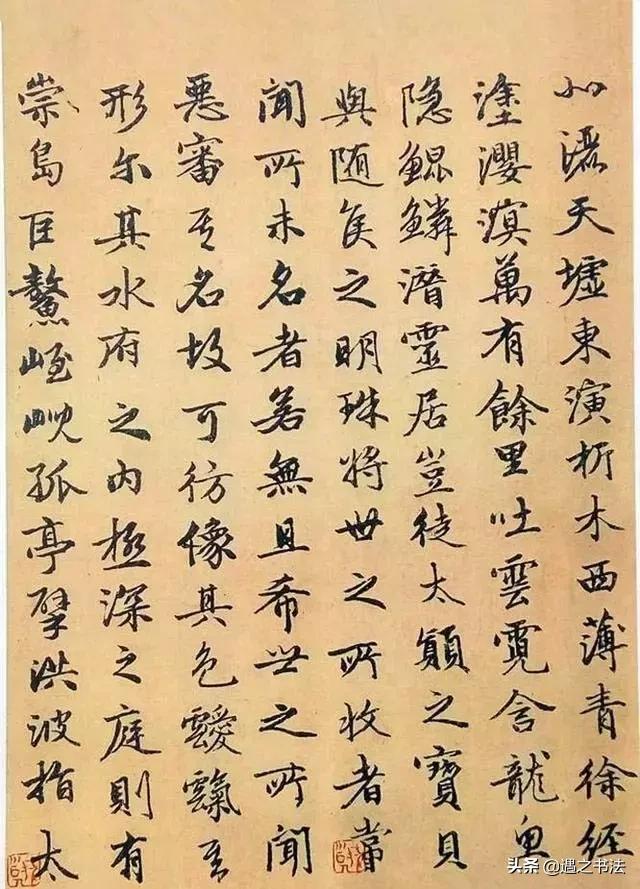 北灑天墟東演析木西薄青徐經
塗瀴溟萬有餘里吐雲霓含龍魚
隐鯤鱗潛靈居豈徒太顛之寶貝
與随侯之明珠將世之所收者常
聞所未名者若無且希世之所聞
惡審其名故可彷像其色靉霼其
形尔其水府之内極深之庭則有
崇島巨鼇峌峴孤亭擘洪波指太
头条 @遇之书法